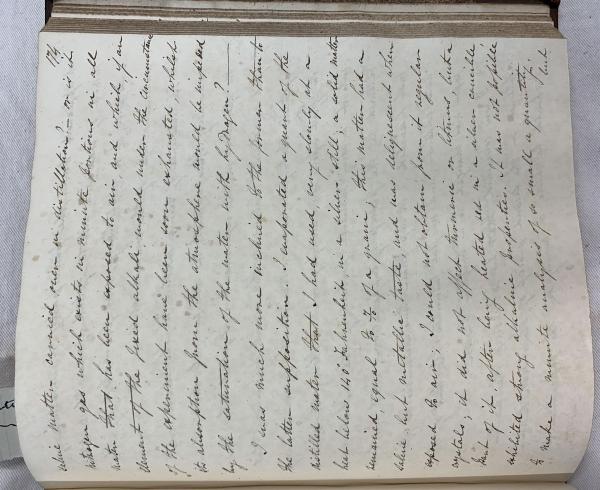 174
saline matter carried over in distillation? — or is it
nitrogen gas which exists in minute portions in all
water that has been exposed to air and which if an
element of the fixed alkali would under the circumstances
of the experiment have been soon exhausted, whilst
its absorption from the atmosphere would be impeded
by the saturation of the water with hydrogen? —
I was much more inclined to the former than to
the latter supposition. I evaporated a quart of the
distilled water that I had used very slowly at a
heat below 140° Fahrenheit in a silver still; a solid matter
remained, equal to of a grain; this matter had a
saline but metallic taste, and was deliquescent when
exposed to air; I could not obtain from it regular
crystals; it did not affect turmeric or litmus, but a
part of it after being heated red in a silver crucible
exhibited strong alkaline properties. It was not possible
to make a minute analysis of so small a quantity,
but